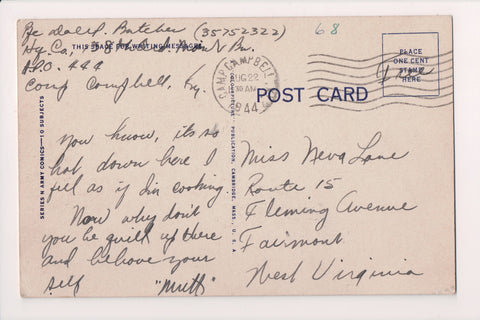 Pfc Dale L. Butcher (35752322)
68
Hq. Co,
THIS SPACE FOR WRITING MESSAGES
Bn.
A.P.O. 444
Camp Campbell, Ky.
CAMP CAMPBELL
AUG 22
10 AM
1944
PLACE
ONE CENT
STAMP
HERE
Free
POST CARD
SERIES N ARMY COMICS—10 SUBJECTS
PUBLICATION, CAMBRIDGE, MASS., U. S. A.
You know, its so
hot down here I
feel as if I'm cooking.
Now why don't
you be quiet up there
and behove your
self "Mutt"
Miss Neva Lane
Route 15
Fleming Avenue
Fairmont
West Virginia